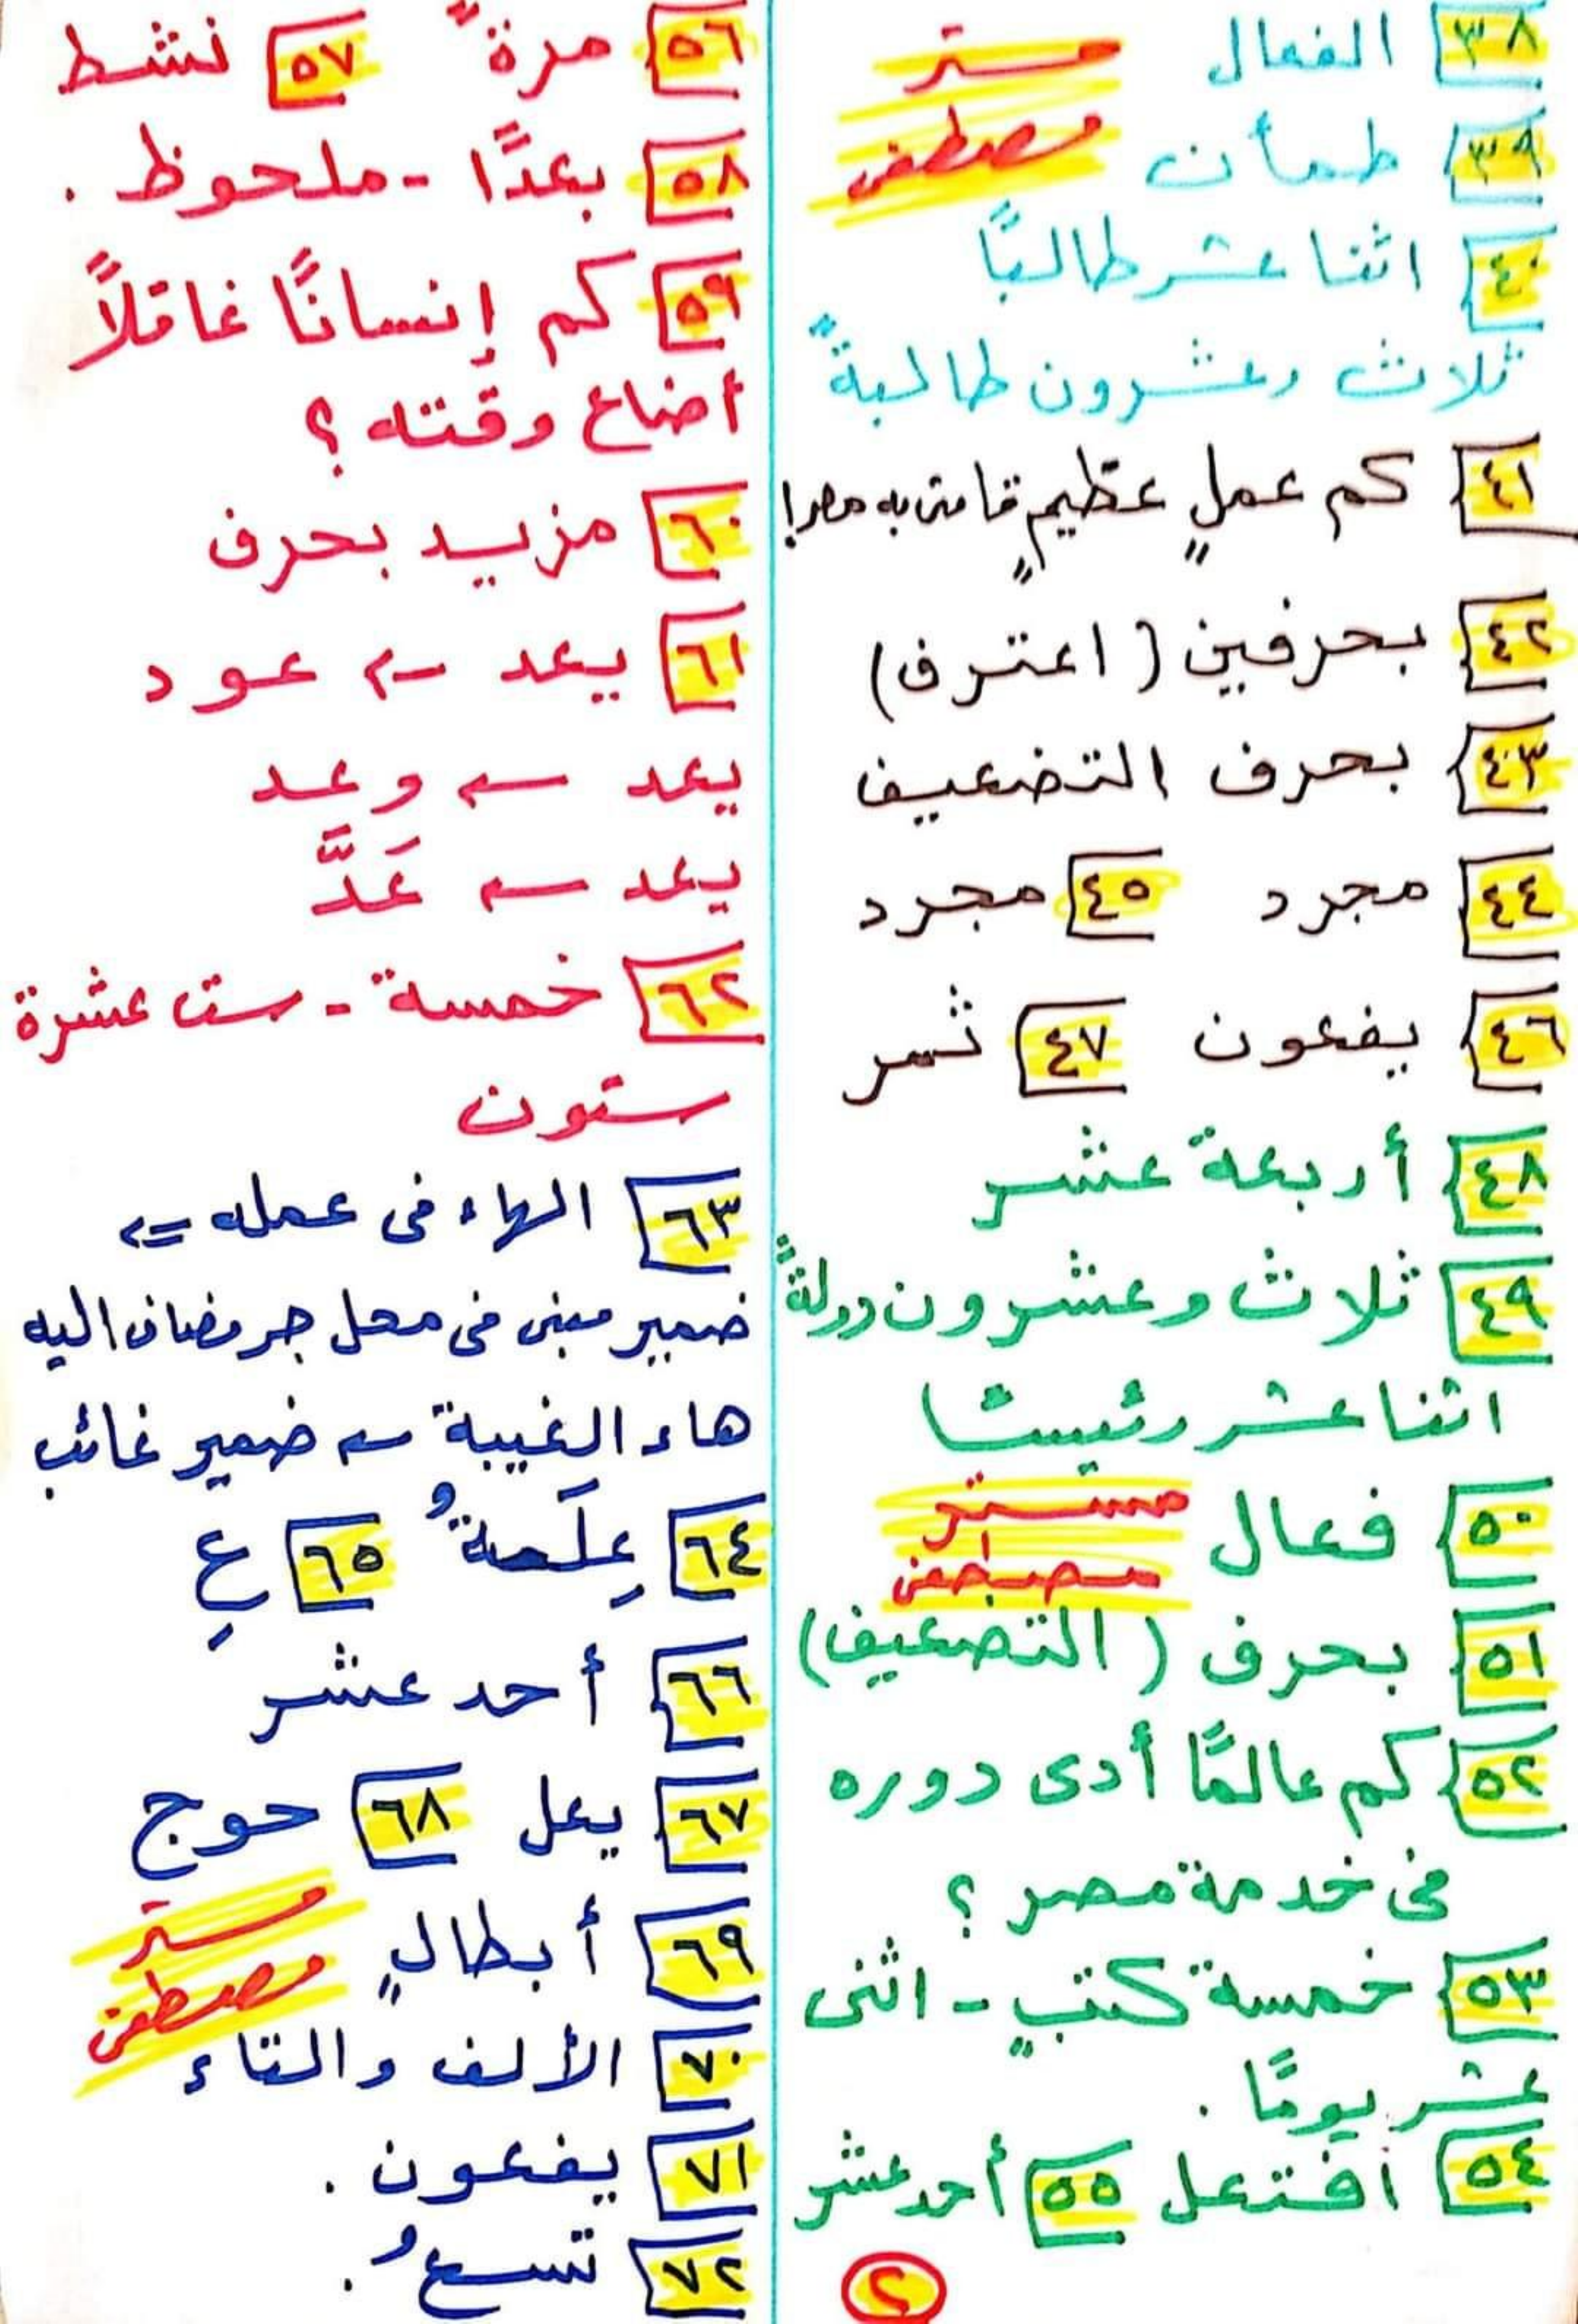 ٣٨ الفعال
مستر
مصطفى
٣٩ طمأن
٤٠ اثنا عشر طالبًا
ثلاث وعشرون طالبةً
٤١ كم عملٍ عظيمٍ قامت به مصر!
٤٢ بحرفين (اعترف)
٤٣ بحرف التضعيف
٤٤ مجرد ٤٥ مجرد
٤٦ يفعون ٤٧ نسر
٤٨ أربعة عشر
٤٩ ثلاث وعشرون دولةً
اثنا عشر رئيسًا
٥٠ فعال
مستر
مصطفى
٥١ بحرف (التضعيف)
٥٢ كم عالمًا أدى دوره
فى خدمة مصر ؟
٥٣ خمسة كتبٍ - اثنى
عشر يومًا .
٥٤ افتعل ٥٥ أحد عشر
٢
٥٦ مرةً ٥٧ نشط
٥٨ بعدًا - ملحوظ .
٥٩ كم إنسانًا غافلًا
أضاع وقته ؟
٦٠ مزيد بحرف
٦١ يعد ← عود
يعد ← وعد
يعد ← عَدَّ
٦٢ خمسة - ست عشرة
ستون
٦٣ الهاء فى عمله ⇐
ضمير مبنى فى محل جر مضاف اليه
هاء الغيبة ← ضمير غائب
٦٤ عِلَمةُ ٦٥ عِ
٦٦ أحد عشر
٦٧ يعل ٦٨ حوج
مستر
مصطفى
٦٩ أبطالٍ
٧٠ الألف والتاء
٧١ يفعون .
٧٢ تسعُ .